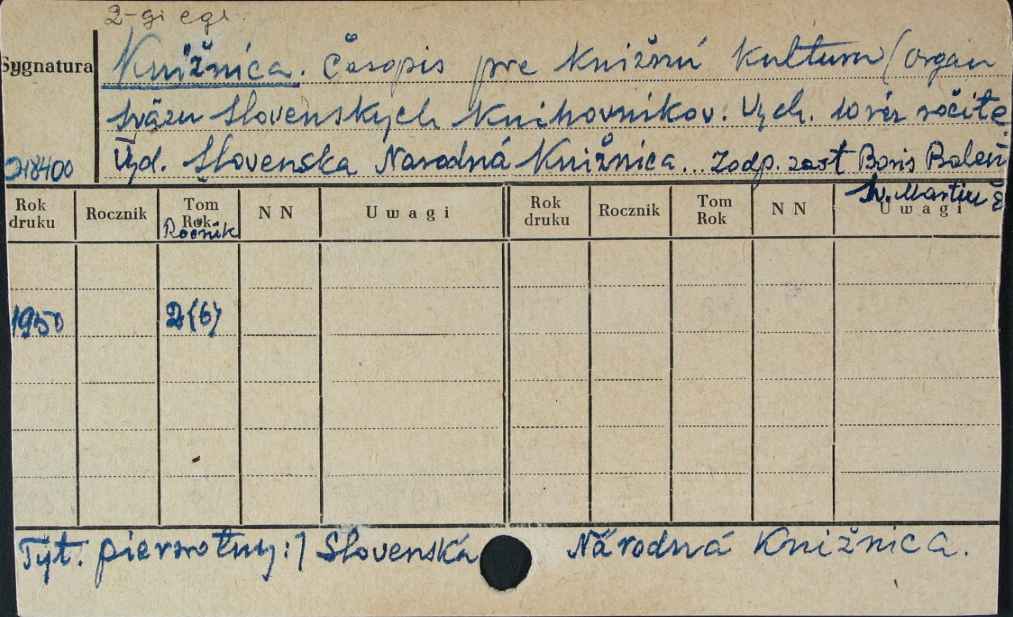 2-gi egz.
Sygnatura
Knižnica. Časopis pre knižnú kulturu (organ
sväzu slovenskych knihovníkov. Vych. 10 ráz ročite.
218400
Vyd. Slovenska Narodná Knižnica... Zodp. zast Boris Balent
Sv. Martin
Rok druku Rocznik Tom Rok NN Uwagi Rok druku Rocznik Tom Rok NN Uwagi
Ročnik
1950 2(6)
Tyt. pierwotny:] Slovenská Národná Knižnica.